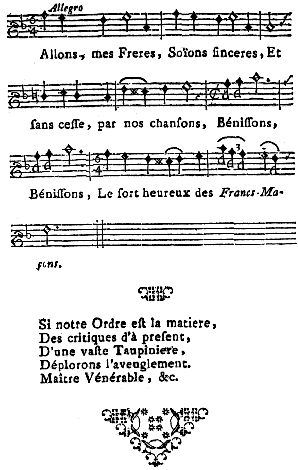 Allegro
Allons, mes Freres, Soïons sinceres, Et
sans cesse, par nos chansons, Bénissons,
3
Bénissons, Le sort heureux des Francs-Ma-
çons.
Si notre Ordre est la matiere,
Des critiques d'à present,
D'une vaste Taupiniere,
Déplorons l'aveuglement.
Maître Vénérable, &c.